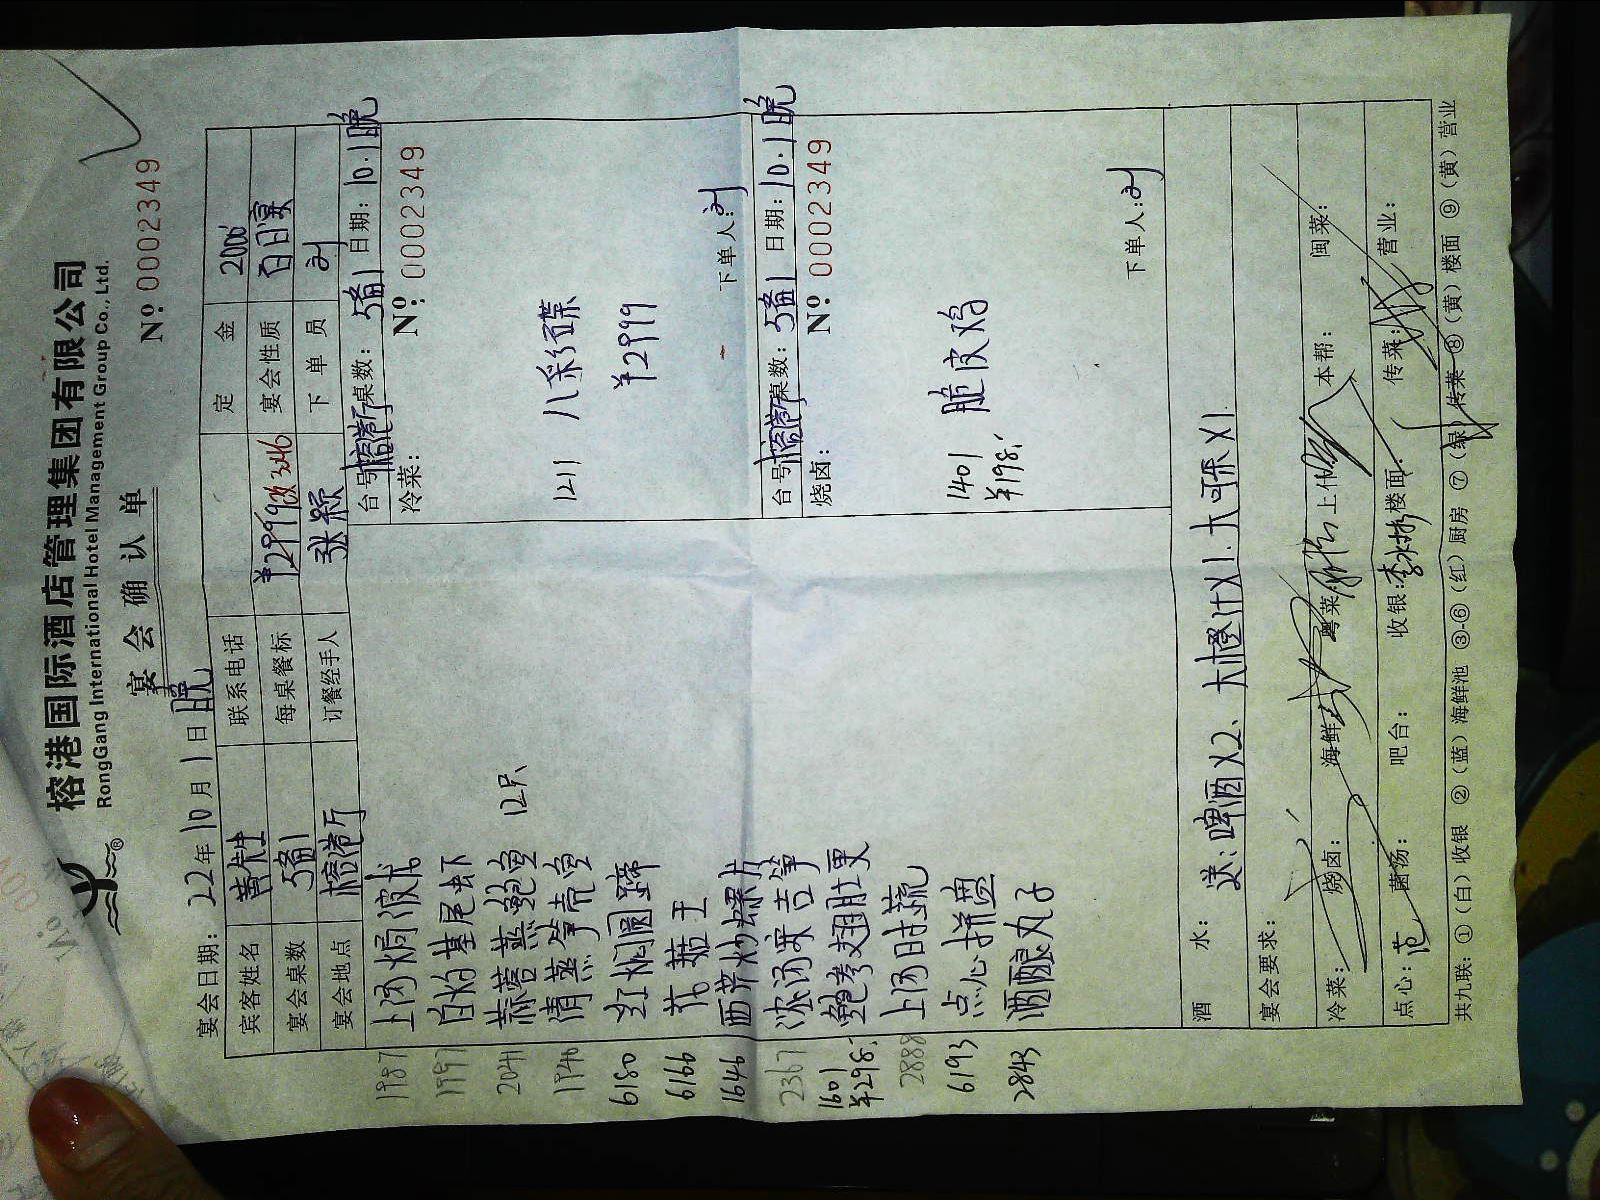 榕港国际酒店管理集团有限公司
RongGang International Hotel Management Group Co., Ltd.
宴会确认单
Nº: 0002349
宴会日期: 22年10月1日 晚
宾客姓名 黄先生 联系电话 定金 2000
宴会桌数 5备1 每桌餐标 ¥2999 改3246 宴会性质 百日宴
宴会地点 榕港厅 订餐经手人 张颖 下单员 刘
1987 上汤焗波龙
1997 白灼基尾虾
2041 蒜蓉蒸鲍鱼 12只
1940 清蒸笋壳鱼
6180 红焖圆蹄
6166 茄菇王
1646 西芹炒螺片
2367 浓汤浸吉笋
1601 鲍参翅肚羹
¥298.
2888 上汤时蔬
6193 点心拼盘
2843 酒酿丸子
台号 榕港厅 桌数: 5备1 日期: 10.1晚
冷菜: Nº: 0002349
1211 八彩碟
¥2999
下单人: 刘
台号 榕港厅 桌数: 5备1 日期: 10.1晚
烧卤: Nº 0002349
1401 脆皮鸡
¥198.
下单人: 刘
酒水: 送: 啤酒X2、大橙汁X1. 大可乐X1.
宴会要求:
冷菜: 烧卤: 海鲜 粤菜 上什 本帮: 闽菜:
点心: 范 菌汤: 吧台: 收银: 李水彬 楼面: 传菜: 营业:
共九联: ①(白)收银 ②(蓝)海鲜池 ③-⑥(红)厨房 ⑦(绿)传菜 ⑧(黄)楼面 ⑨(黄)营业